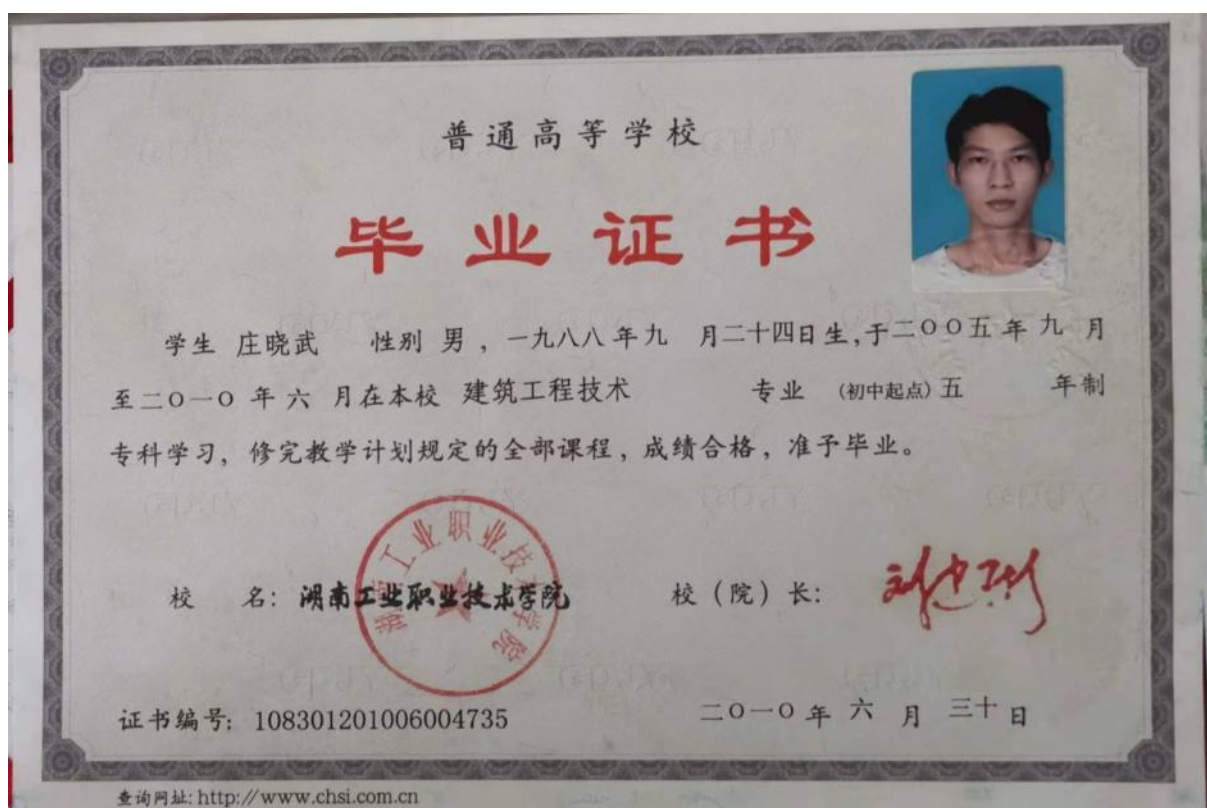 普通高等学校
毕业证书
学生 庄晓武 性别 男，一九八八年九 月二十四日生,于二〇〇五年 九 月
至二〇一〇 年 六 月在本校 建筑工程技术 专业 (初中起点) 五 年制
专科学习，修完教学计划规定的全部课程，成绩合格，准予毕业。
湖南工业职业技术学院
校 名: 湖南工业职业技术学院 校（院）长:
证书编号: 108301201006004735 二〇一〇 年 六 月 三十 日
查询网址: http://www.chsi.com.cn